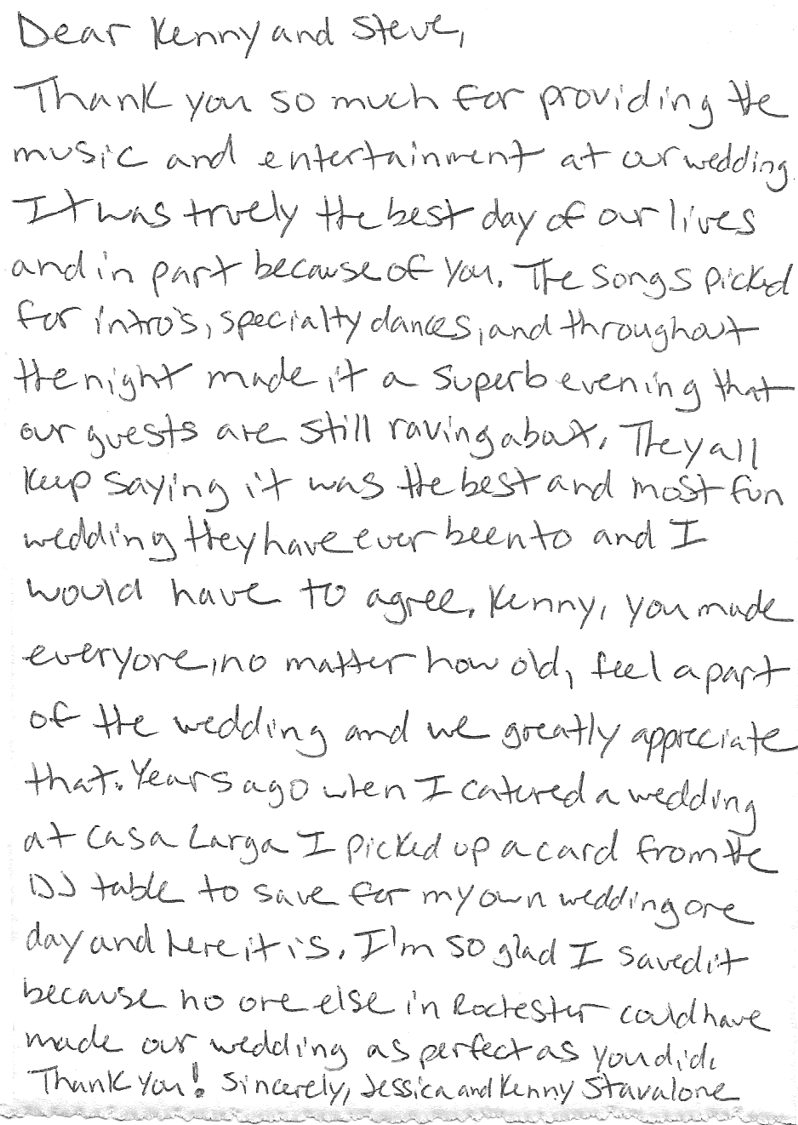 Dear Kenny and Steve,
Thank you so much for providing the
music and entertainment at our wedding.
It was truely the best day of our lives
and in part because of you. The songs picked
for intro's, specialty dances, and throughout
the night made it a superb evening that
our guests are still raving about. They all
keep saying it was the best and most fun
wedding they have ever been to and I
would have to agree. Kenny, you made
everyone, no matter how old, feel a part
of the wedding and we greatly appreciate
that. Years ago when I catered a wedding
at Casa Larga I picked up a card from the
DJ table to save for my own wedding one
day and here it is. I'm so glad I saved it
because no one else in Rochester could have
made our wedding as perfect as you did.
Thank you! Sincerely, Jessica and Kenny Stavalone